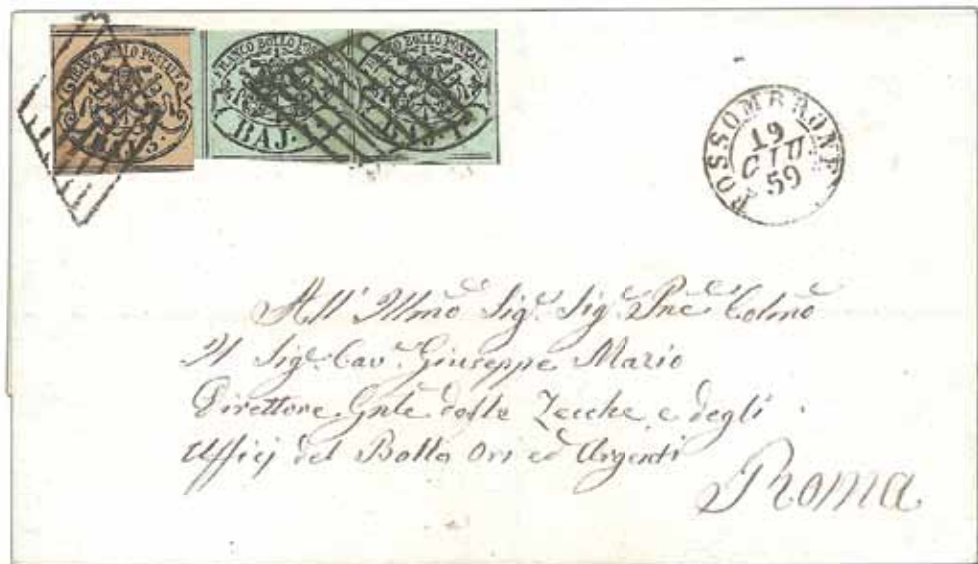 FRANCO BOLLO POSTALE
BAJ. 3.
FRANCO BOLLO POSTALE
BAJ. 1.
FRANCO BOLLO POSTALE
BAJ. 1.
FOSSOMBRONE
19
GIU
59
All' Illmo Sig.e Sig.e Pne Colmo
Il Sig.e Cav.e Giuseppe Mario
Direttore Gnle delle Zecche e degli
Ufficj del Bollo Ori ed Argenti
Roma